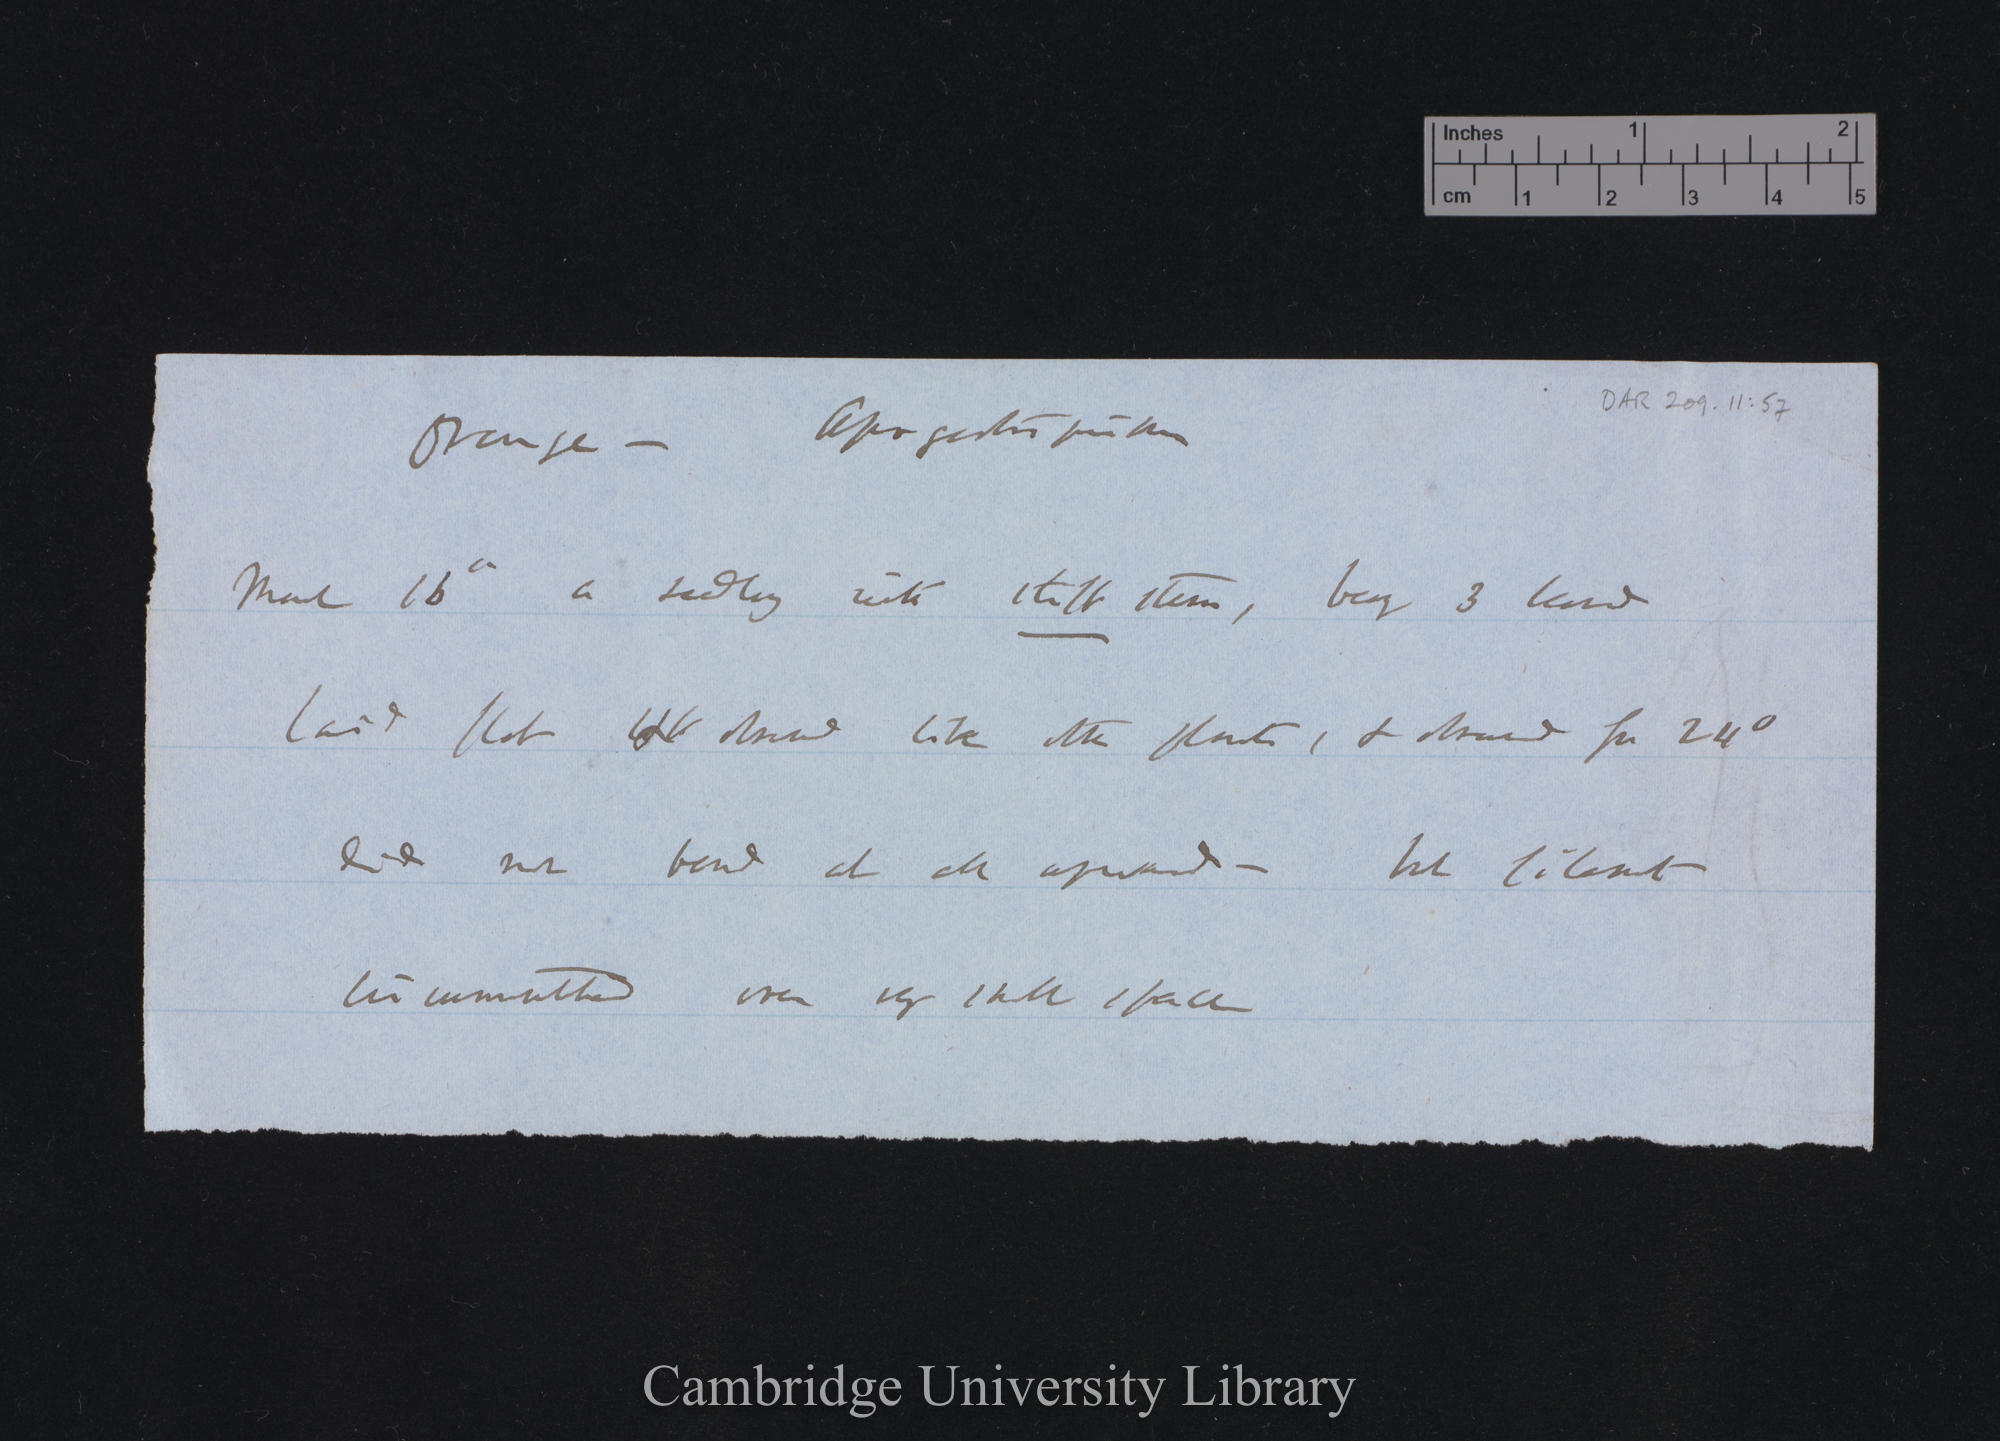 Inches 1 2
cm 1 2 3 4 5
DAR 209.11:57
Orange — Apogeotropism
March 16th a seedling with stiff stem, bearing 3 leaves
laid flat observed like other plants, & observed for 24°
did not bend at all upwards — but filament
circumnutated over very small space
Cambridge University Library